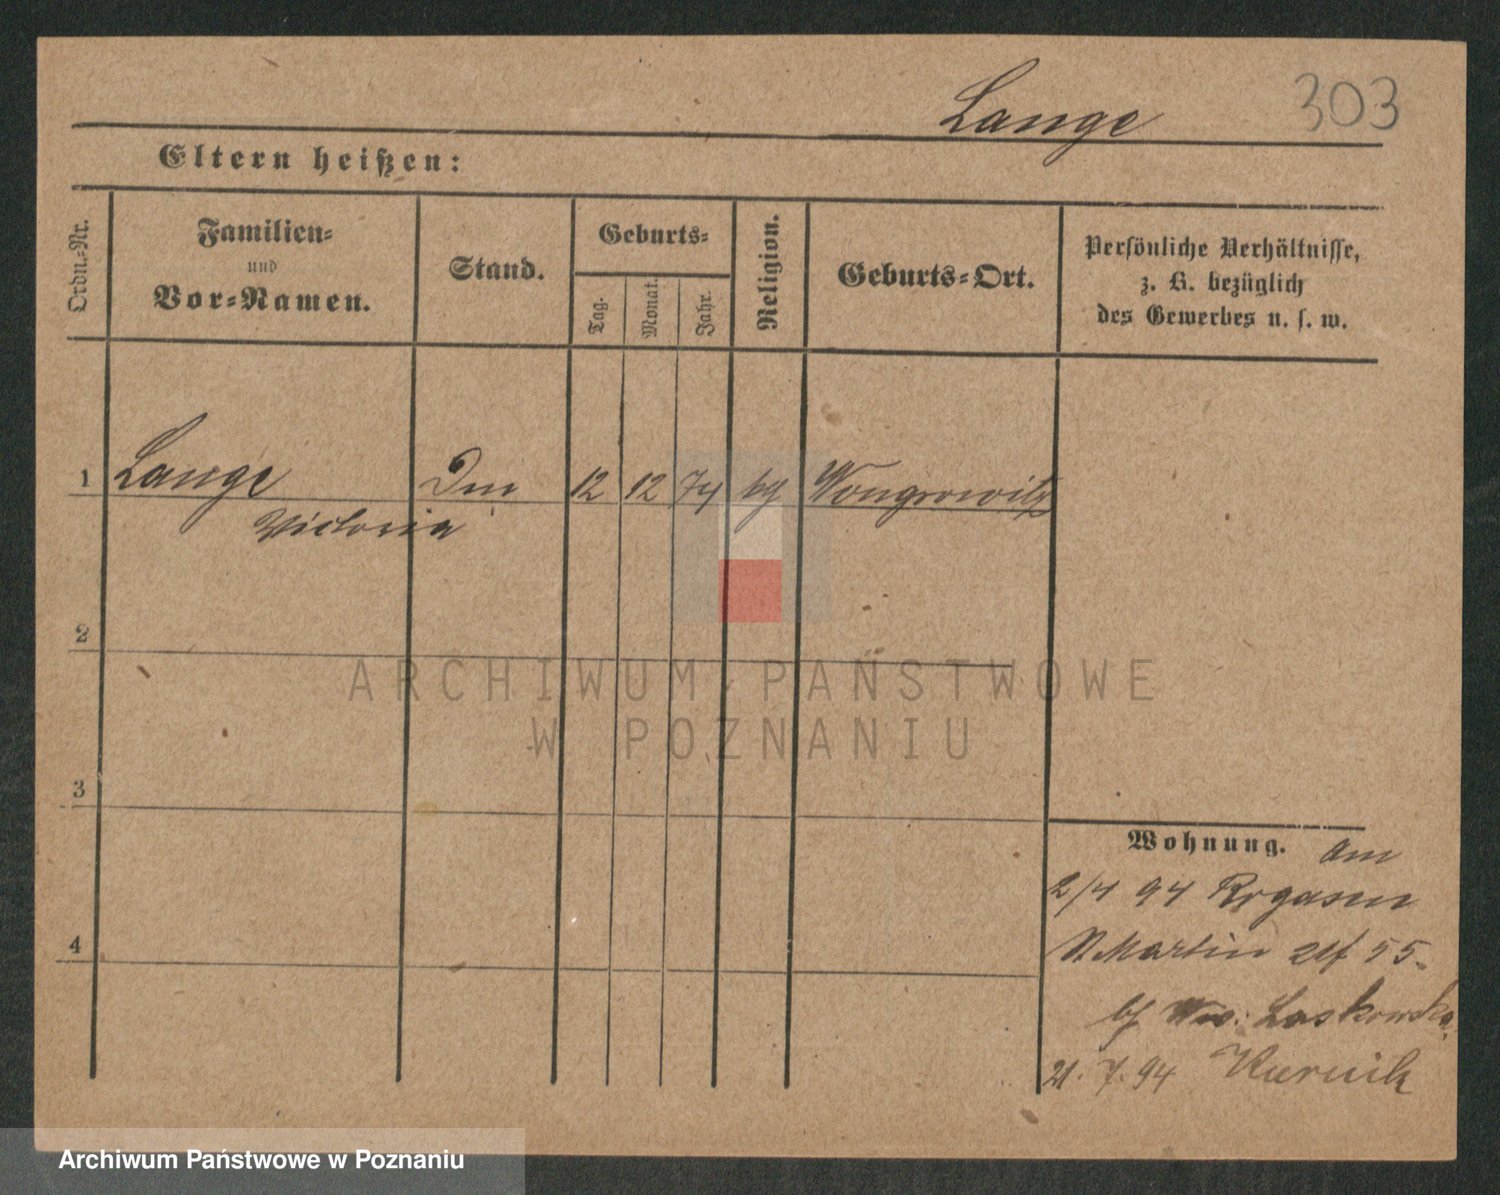 Lange 303
Eltern heißen:
Ordn.-Nr.
Familien-
und
Vor-Namen.
Stand.
Geburts-
Tag.
Monat.
Jahr.
Religion.
Geburts-Ort.
Persönliche Verhältnisse,
z. B. bezüglich
des Gewerbes u. s. w.
1 Lange 12 12 74 Wongrowitz
Victoria
2
3
4
Wohnung. Am
2/4 94 Rogasen
St Martin 55.
Laskowska
21. 7. 94 Kurnik
ARCHIWUM PAŃSTWOWE
W POZNANIU
Archiwum Państwowe w Poznaniu